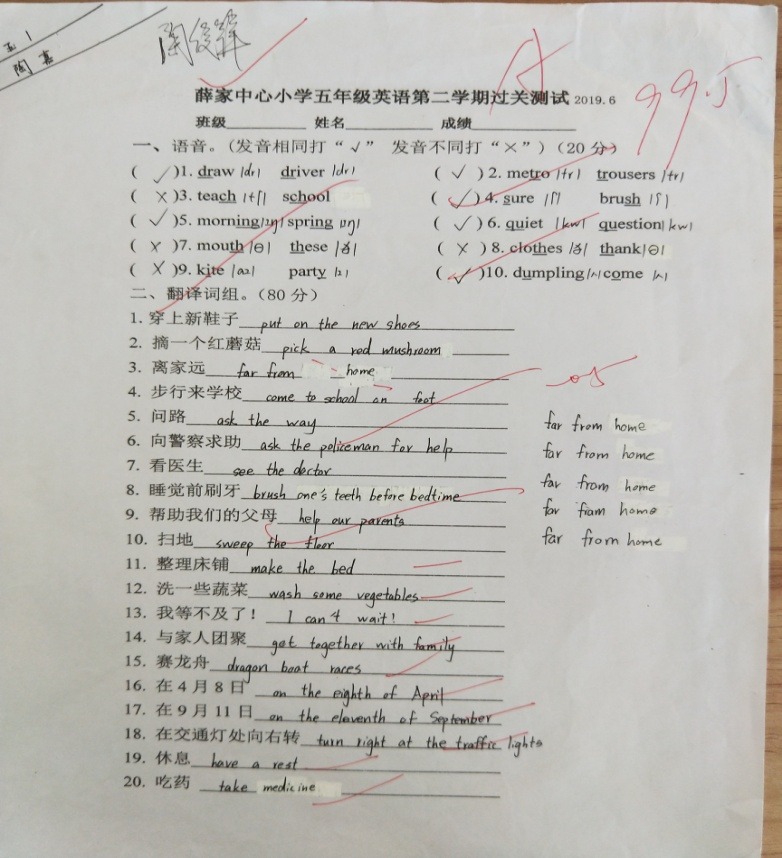 五1
陶嘉
薛家中心小学五年级英语第二学期过关测试 2019.6
99.5
班级 姓名 成绩
一、语音。(发音相同打“√” 发音不同打“×”)(20 分)
( √ )1. draw |dr| driver |dr| ( √ ) 2. metro |tr| trousers |tr|
( × )3. teach |tʃ| school ( √ ) 4. sure |ʃ| brush |ʃ|
( √ )5. morning |ɪŋ| spring |ɪŋ| ( √ ) 6. quiet |kw| question |kw|
( × )7. mouth |θ| these |ð| ( × ) 8. clothes |ð| thank |θ|
( × )9. kite |aɪ| party |ɪ| ( √ )10. dumpling |ʌ| come |ʌ|
二、翻译词组。(80 分)
1. 穿上新鞋子 put on the new shoes
2. 摘一个红蘑菇 pick a red mushroom
3. 离家远 far from home
4. 步行来学校 come to school on foot -0.5
5. 问路 ask the way far from home
6. 向警察求助 ask the policeman for help far from home
7. 看医生 see the doctor far from home
8. 睡觉前刷牙 brush one's teeth before bedtime far from home
9. 帮助我们的父母 help our parents far from home
10. 扫地 sweep the floor
11. 整理床铺 make the bed
12. 洗一些蔬菜 wash some vegetables
13. 我等不及了! I can't wait!
14. 与家人团聚 get together with family
15. 赛龙舟 dragon boat races
16. 在 4 月 8 日 on the eighth of April
17. 在 9 月 11 日 on the eleventh of September
18. 在交通灯处向右转 turn right at the traffic lights
19. 休息 have a rest
20. 吃药 take medicine